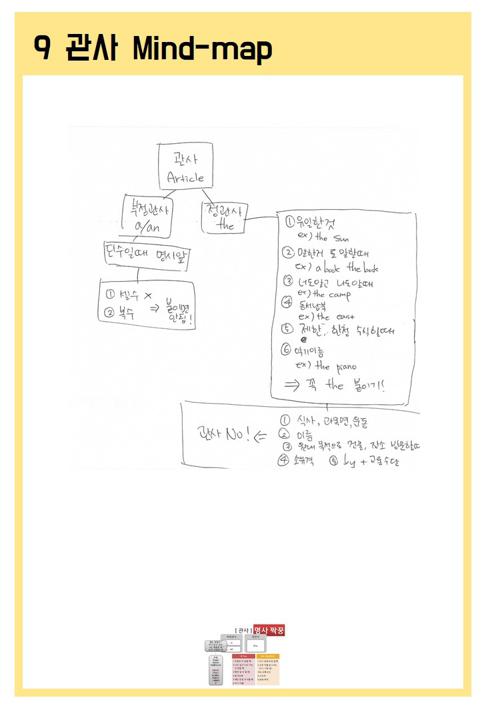 9 관사 Mind-map
관사
Article
부정관사
a/an
정관사
the
단수일때 명사앞
① 셀수 X
② 복수
⇒ 붙이면
안됨!
① 유일한것
ex) the sun
② 말한거 또 말할때
ex) a book the book
③ 너도알고 나도알때
ex) the camp
④ 동서남북
ex) the east
⑤ 제한, 한정 수식할때
⑥ 악기이름
ex) the piano
⇒ 꼭 the 붙이기!
관사 No! ⇐
① 식사, 과목명, 운동
② 이름
③ 원래 목적으로 건물, 장소
④ 소유격 ⑤ by + 교통수단
[ 관사 ] 명사 짝꿍